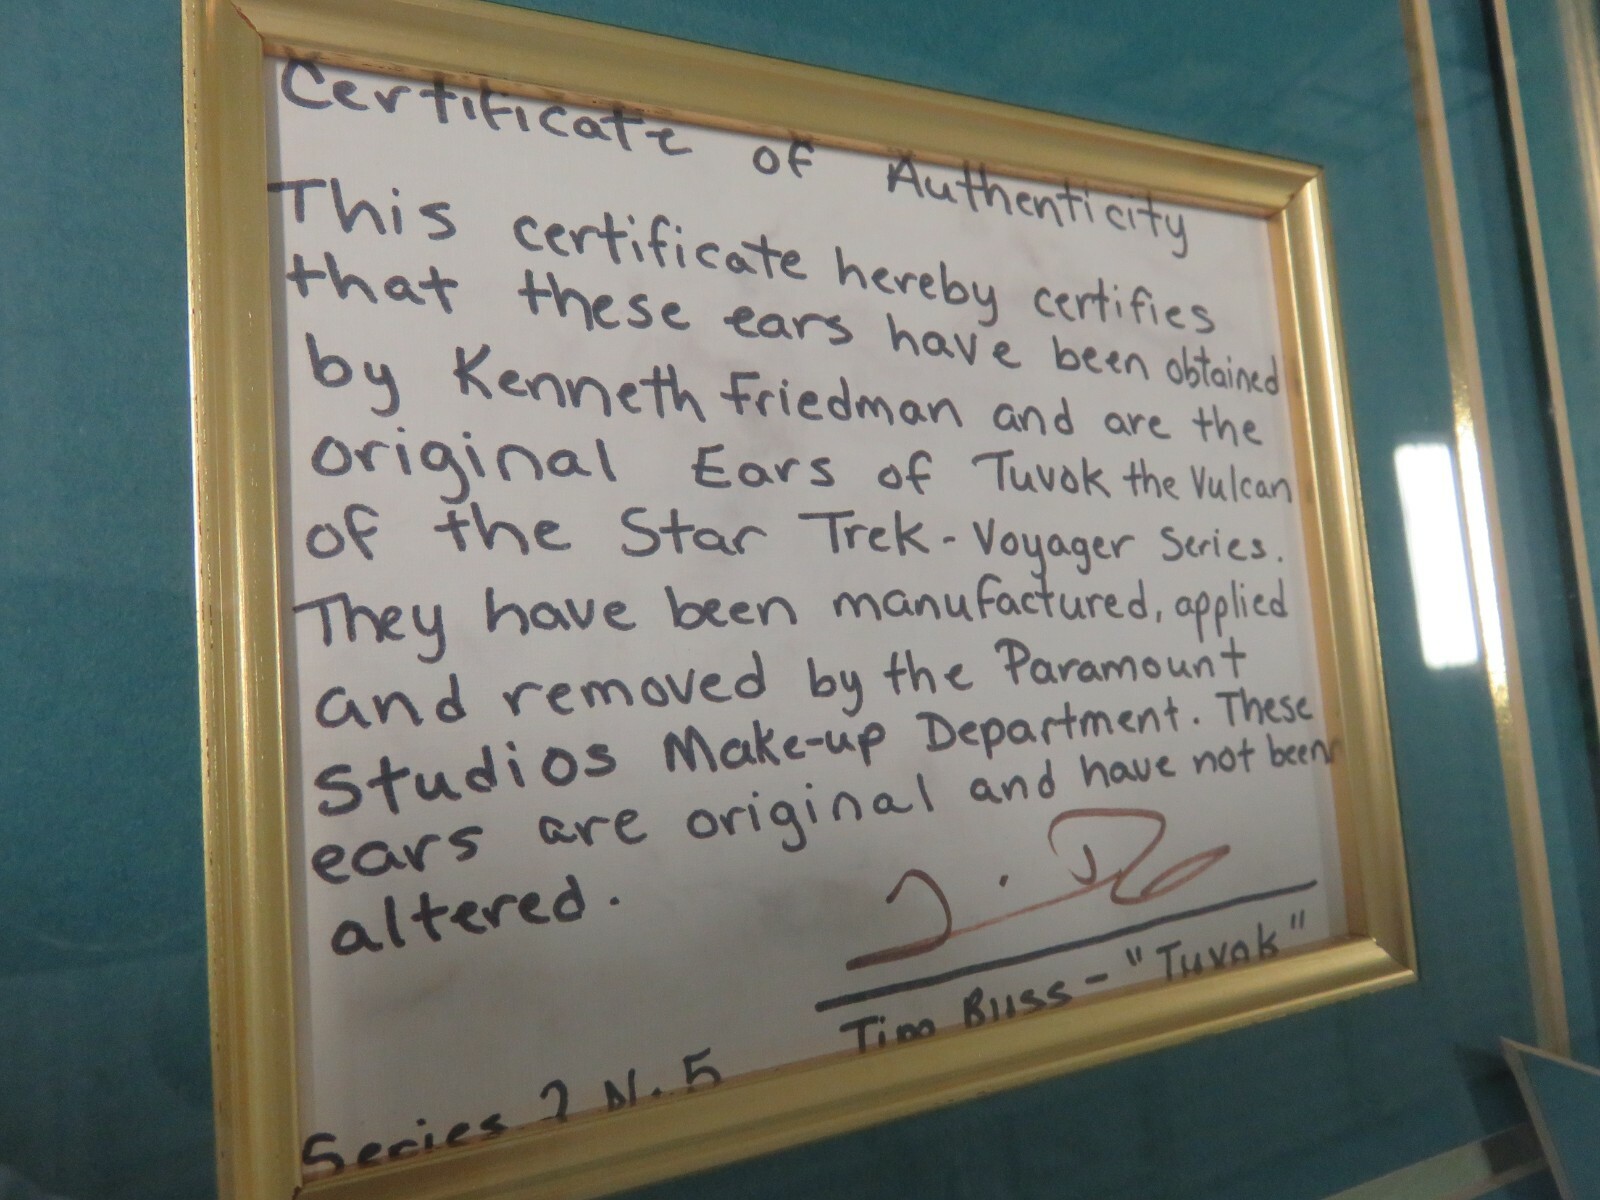 Certificate of Authenticity
This certificate hereby certifies
that these ears have been obtained
by Kenneth Friedman and are the
original Ears of Tuvok the Vulcan
of the Star Trek - Voyager Series.
They have been manufactured, applied
and removed by the Paramount
Studios Make-up Department. These
ears are original and have not been
altered.
Tim Russ - "Tuvok"
Series 2 No. 5